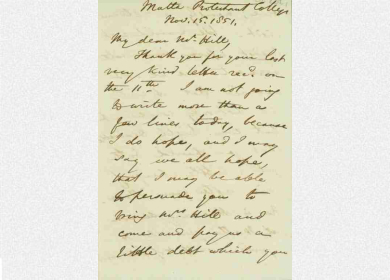 Malta Protestant College
Nov. 15. 1851.
My dear Mr. Hill,
Thank you for your last
very kind letter recd. on
the 11th. I am not going
to write more than a
few lines today, because
I do hope, and I may
say we all hope,
that I may be able
to persuade you to
bring Mrs Hill and
come and pay us a
little debt which you